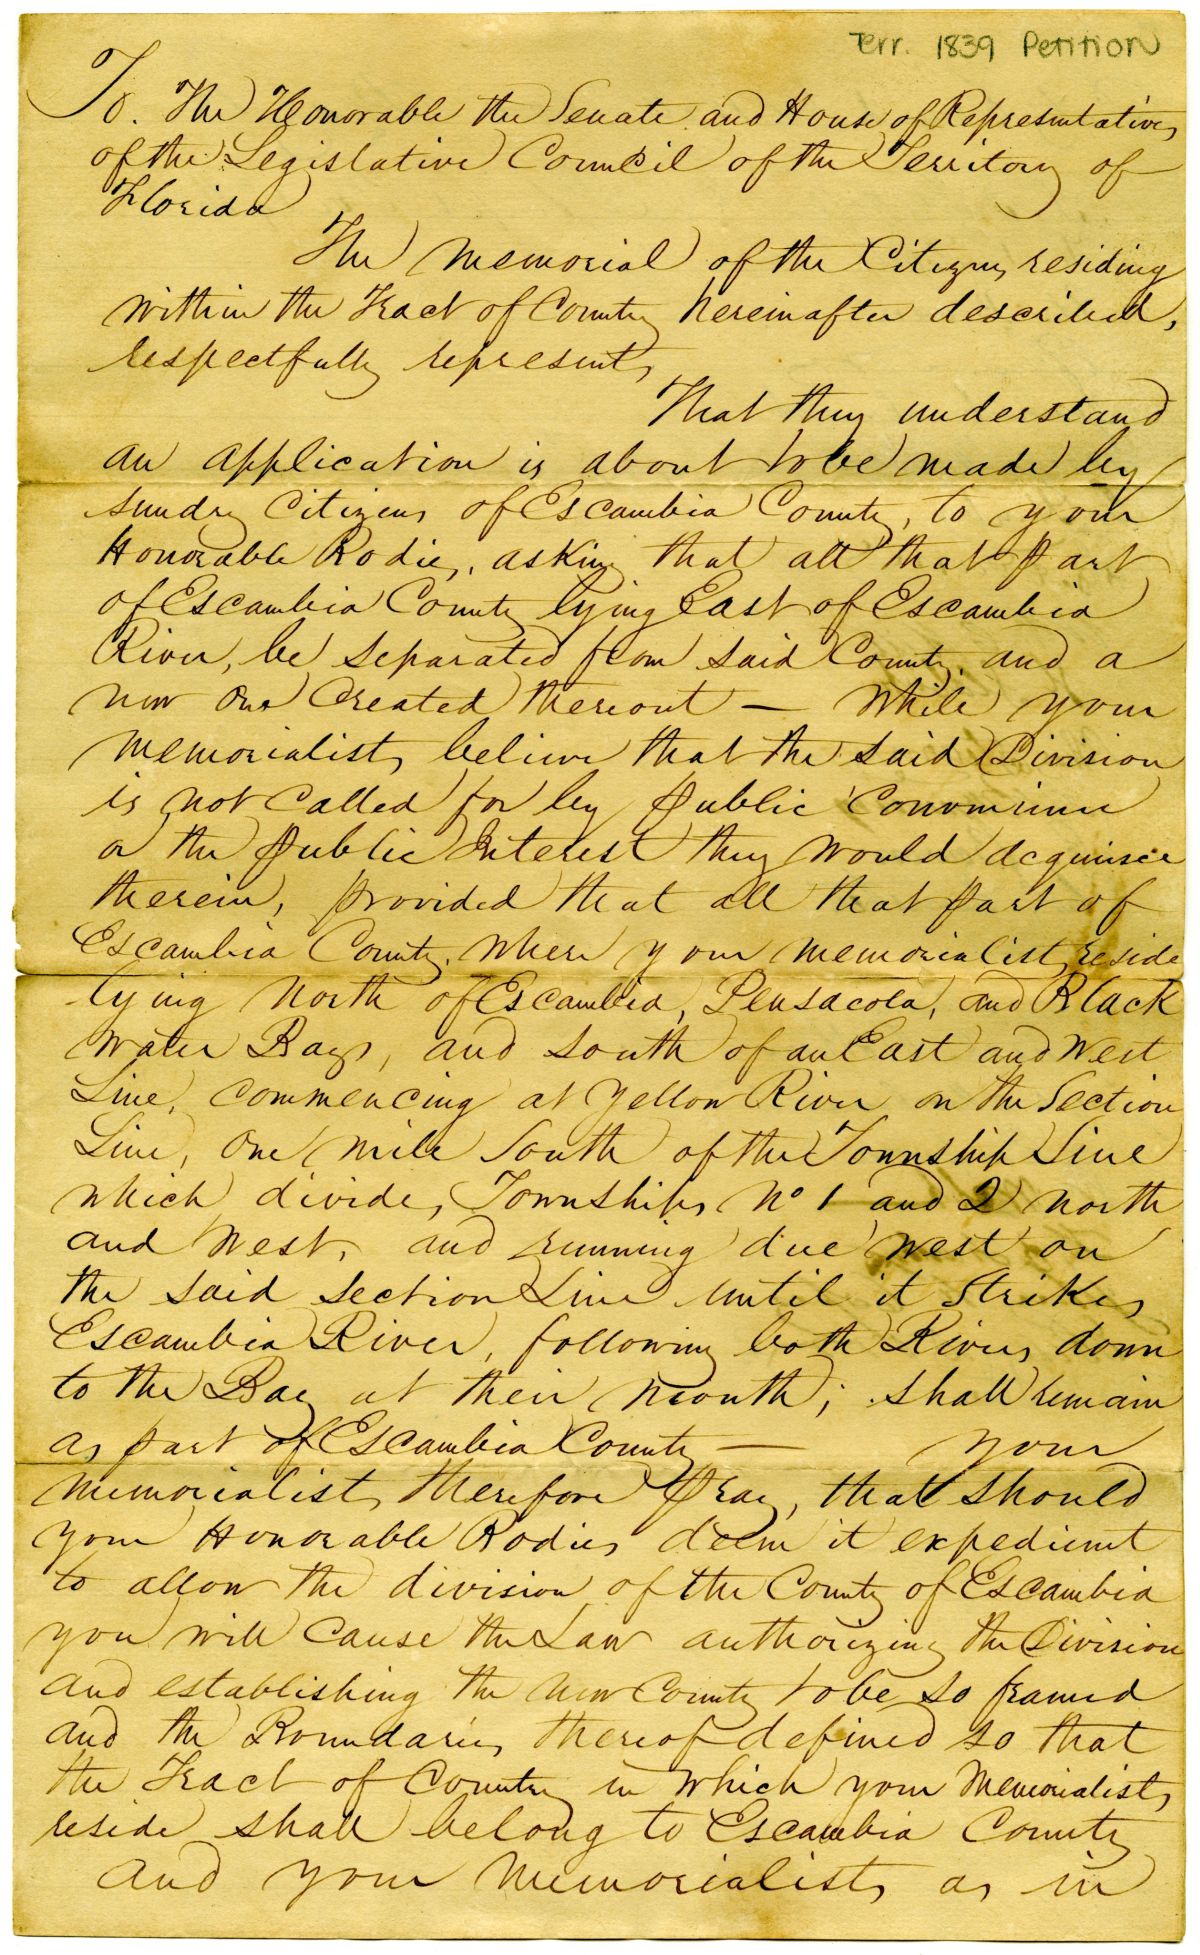 Terr. 1839 Petition
To. The Honorable the Senate and House of Representatives
of the Legislative Council of the Territory of
Florida
The Memorial of the Citizens residing
within the Tract of Country hereinafter described,
respectfully represents,
That they understand
an application is about to be made by
sundry Citizens of Escambia County, to your
Honorable Bodies, asking that all that part
of Escambia County lying East of Escambia
River, be separated from said County, and a
new one Created thereout — While your
memorialists believe that the said Division
is not Called for by public Convenience
or the public Interest they would acquiesce
therein, provided that all that part of
Escambia County, where your memorialists reside
lying North of Escambia, Pensacola, and Black
Water Bays, and South of an East and West
Line, commencing at Yellow River on the Section
Line, One mile South of the Township Line
which divides Townships No 1 and 2 North
and West, and running due West on
the said section Line until it Strikes
Escambia River, following both Rivers down
to the Bay at their mouth; shall remain
as part of Escambia County — Your
memorialists therefore pray, that should
your Honorable Bodies deem it expedient
to allow the division of the County of Escambia
you will Cause the Law authorizing the Division
and establishing the new County to be so framed
and the Boundaries thereof defined so that
the Tract of Country in which your Memorialists
reside shall belong to Escambia County
and your Memorialists as in